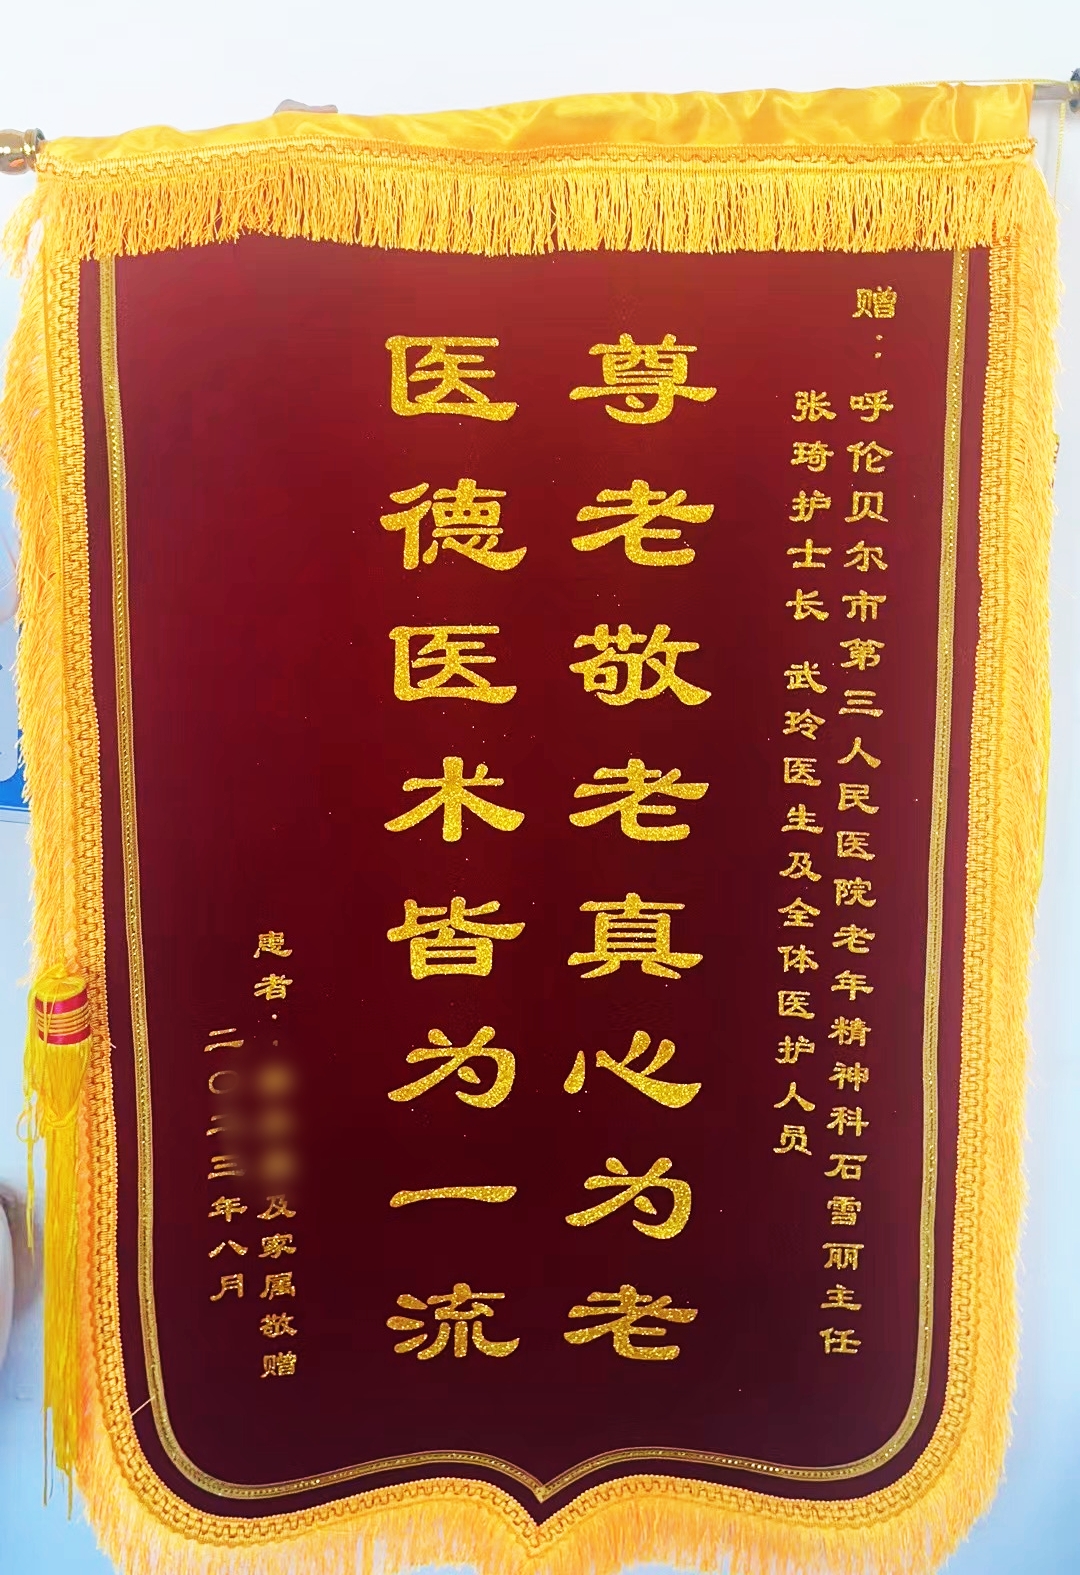 赠：呼伦贝尔市第三人民医院老年精神科石雪丽主任
张琦护士长 武玲医生及全体医护人员
尊老敬老真心为老
医德医术皆为一流
患者：及家属敬赠
二〇二三年八月